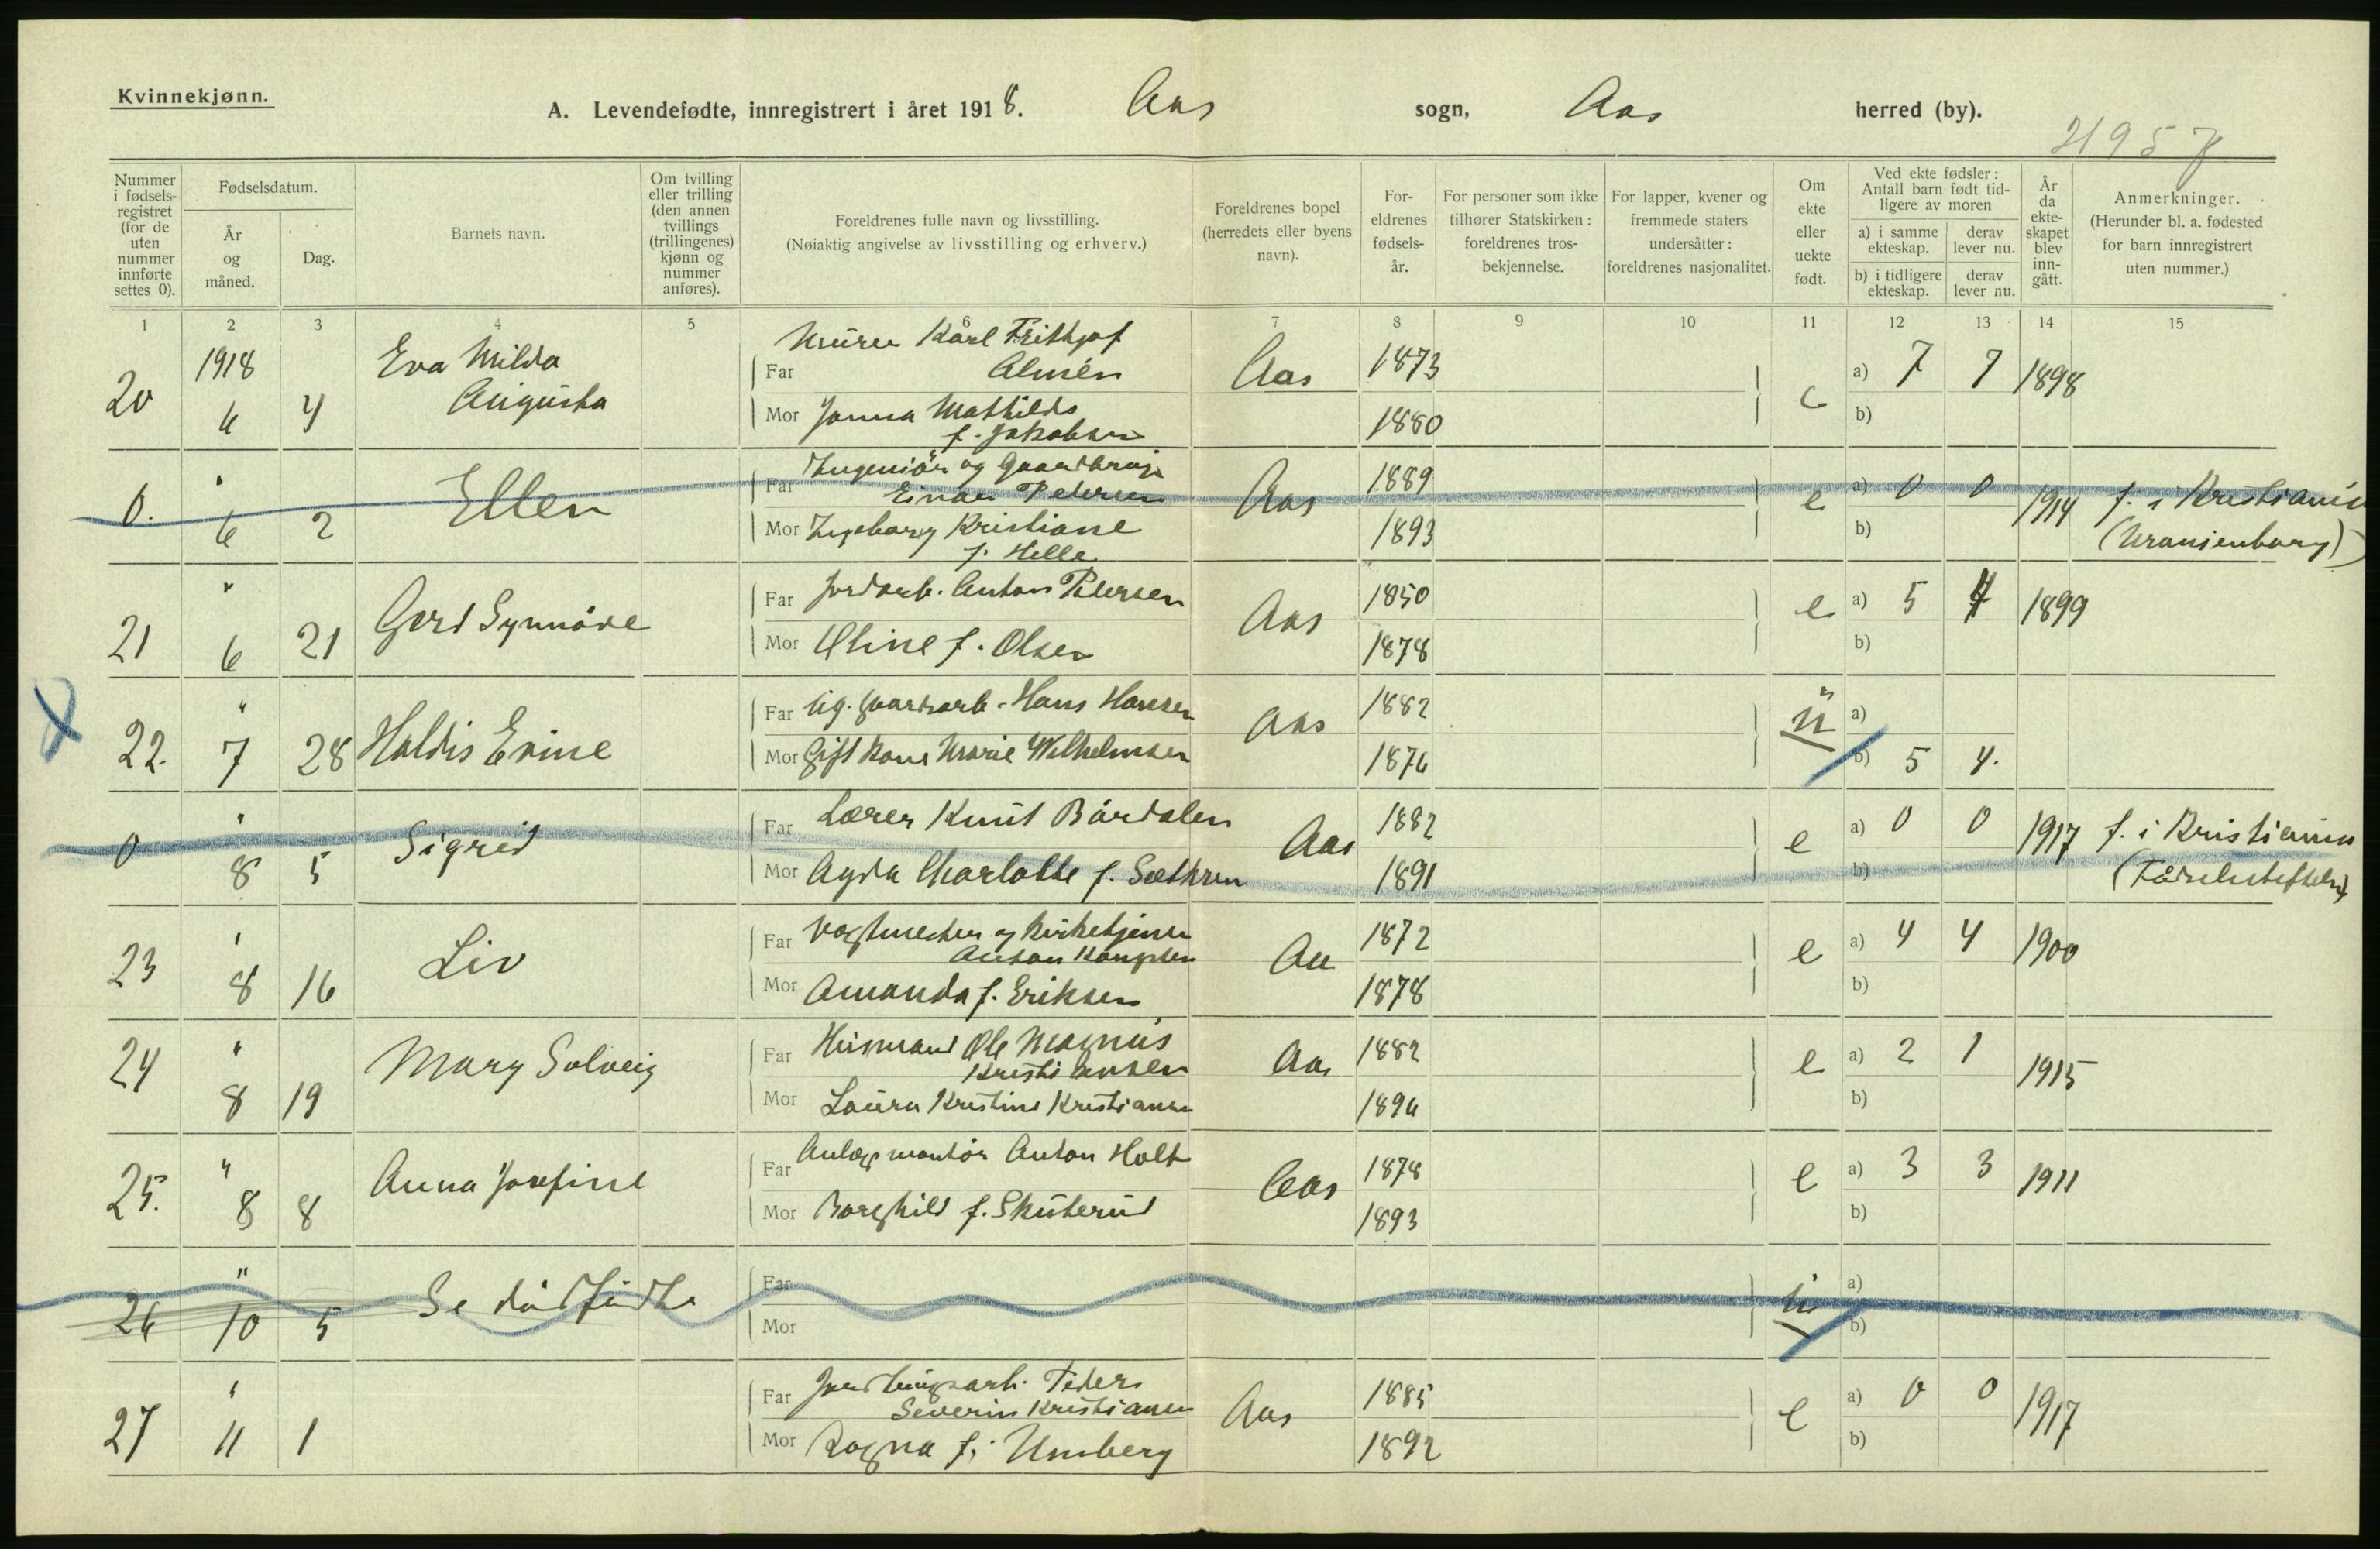 Kvinnekjønn.
A. Levendefødte, innregistrert i året 1918. Aas sogn, Aas herred (by).
Nummer i fødsels-registret (for de uten nummer innførte settes 0).
Fødselsdatum.
År og måned.
Dag.
Barnets navn.
Om tvilling eller trilling (den annen tvillings (trillingenes) kjønn og nummer anføres).
Foreldrenes fulle navn og livsstilling.
(Nøiaktig angivelse av livsstilling og erhverv.)
Foreldrenes bopel (herredets eller byens navn).
For-eldrenes fødsels-år.
For personer som ikke tilhører Statskirken: foreldrenes tros-bekjennelse.
For lapper, kvener og fremmede staters undersåtter: foreldrenes nasjonalitet.
Om ekte eller uekte født.
Ved ekte fødsler: Antall barn født tid-ligere av moren
a) i samme ekteskap. derav lever nu.
b) i tidligere ekteskap. derav lever nu.
År da ekte-skapet blev inn-gått.
Anmerkninger.
(Herunder bl. a. fødested for barn innregistrert uten nummer.)
1 2 3 4 5 6 7 8 9 10 11 12 13 14 15
20 1918 6 4 Eva Milda Augusta
Far Murer Karl Frithjof Almén Aas 1873 e a) 7 7 1898
Mor Janna Mathilde f. Jakobsen 1880 b)
0. " 6 2 Ellen
Far Ingeniør og Gaardbruger Einar Petersen Aas 1889 e a) 0 0 1914 f. i Kristiania
Mor Ingeborg Kristiane f. Helle 1893 b) (Uranienborg)
21 " 6 21 Gerd Synnøve
Far Jordarb. Anton Petersen Aas 1850 e a) 5 4 1899
Mor Oline f. Olsen 1878 b)
22. " 7 28 Haldis Evine
Far Ug. gaardsarb. Hans Hansen Aas 1882 u a)
Mor Gift kone Marie Wilhelmsen 1876 b) 5 4.
0 " 8 5 Sigrid
Far Lærer Knut Bårdalen Aas 1882 e a) 0 0 1917 f. i Kristiania
Mor Agda Charlotte f. Sæthren 1891 b) (Fødselsstiftelsen)
23 " 8 16 Liv
Far Vagtmester og Kirketjener Anton Aas 1872 e a) 4 4 1900
Mor Amanda f. Eriksen 1878 b)
24 " 8 19 Mary Solveig
Far Husmand Ole Magnus Kristiansen Aas 1882 e a) 2 1 1915
Mor Laura Kristine Kristiansen 1896 b)
25. " 8 8 Anna Josefine
Far Anlægsmontør Anton Holt Aas 1878 e a) 3 3 1911
Mor Borghild f. Skuterud 1893 b)
26 " 10 5 Se dødfødte
Far u a)
Mor b)
27 " 11 1
Far Peder Severin Kristiansen Aas 1885 e a) 0 0 1917
Mor Ragna f. Umberg 1892 b)